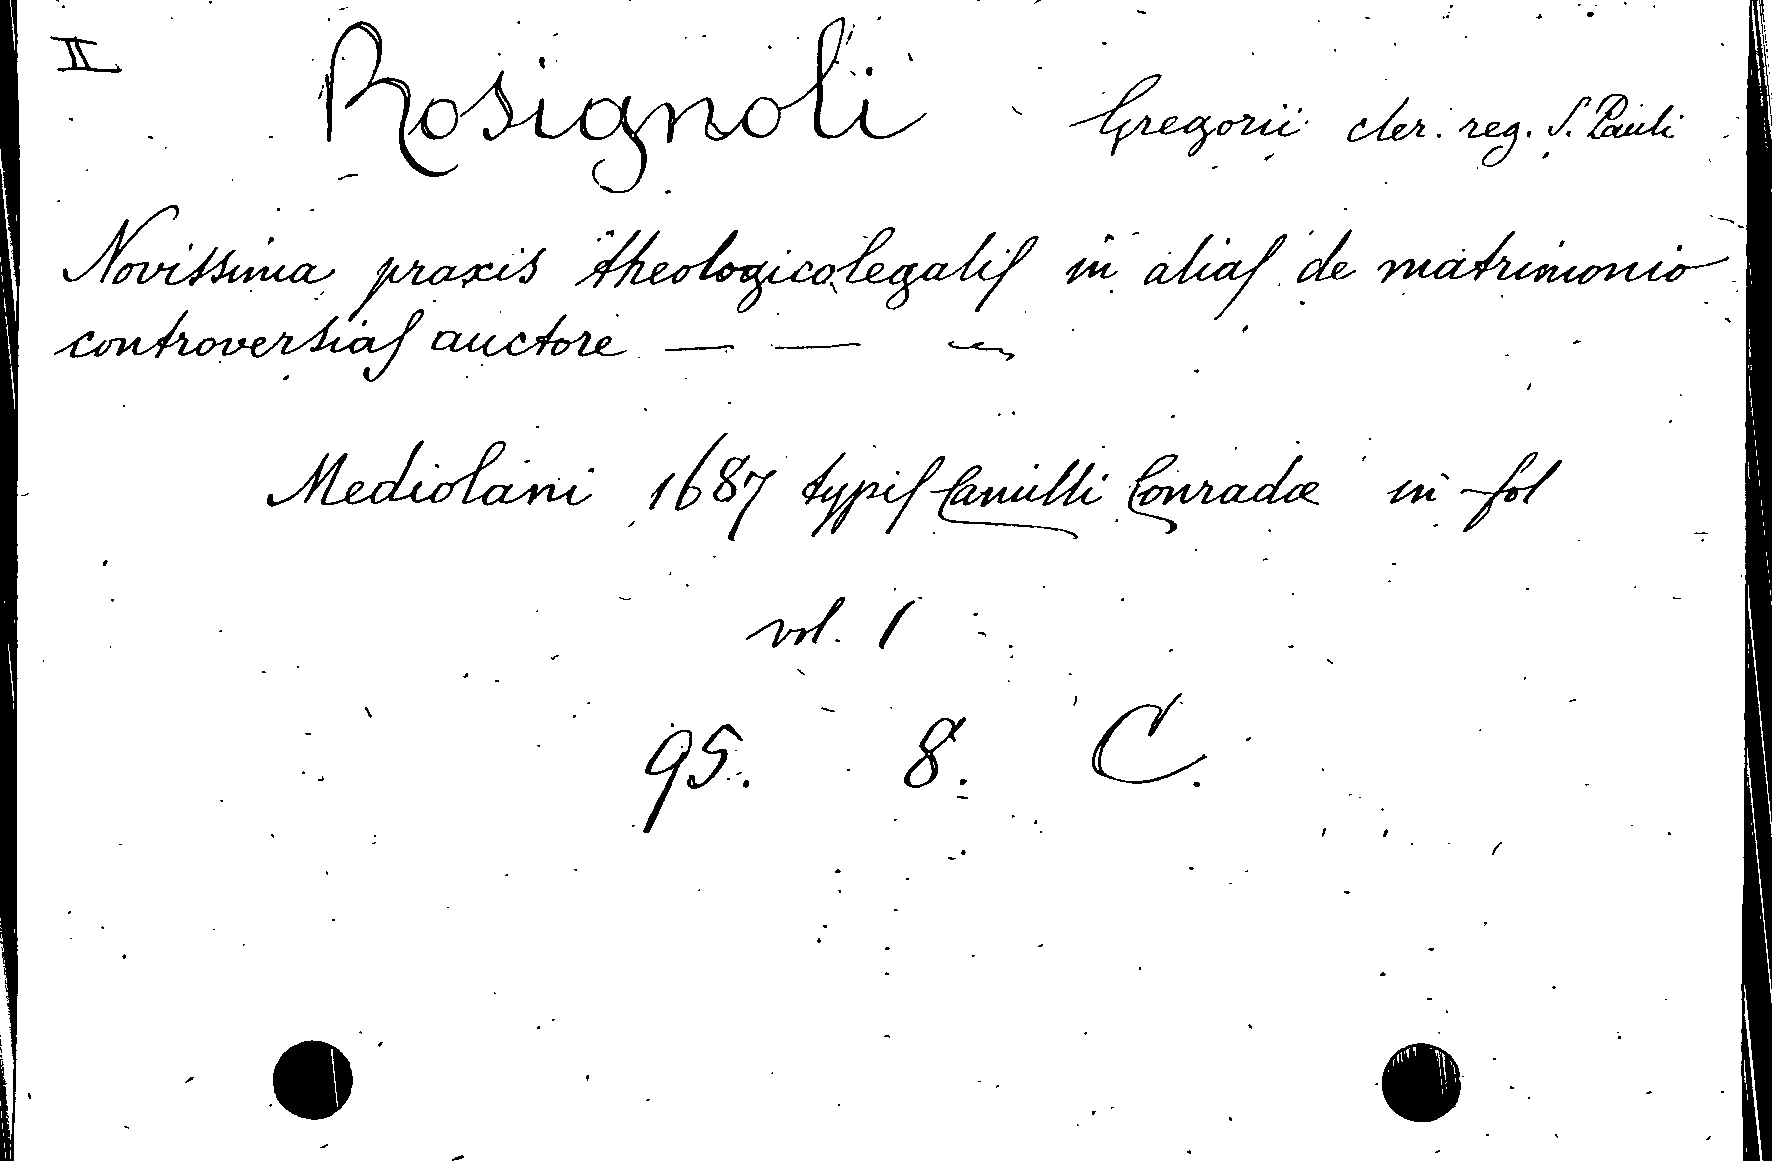 II Rosignoli Gregorii cler. reg. S. Pauli
Novissima praxis theologicolegalis in alias de matrimonio
controversias auctore — — —
Mediolani 1687 typis Camilli Conradæ in fol
vol. 1
95. 8. C.